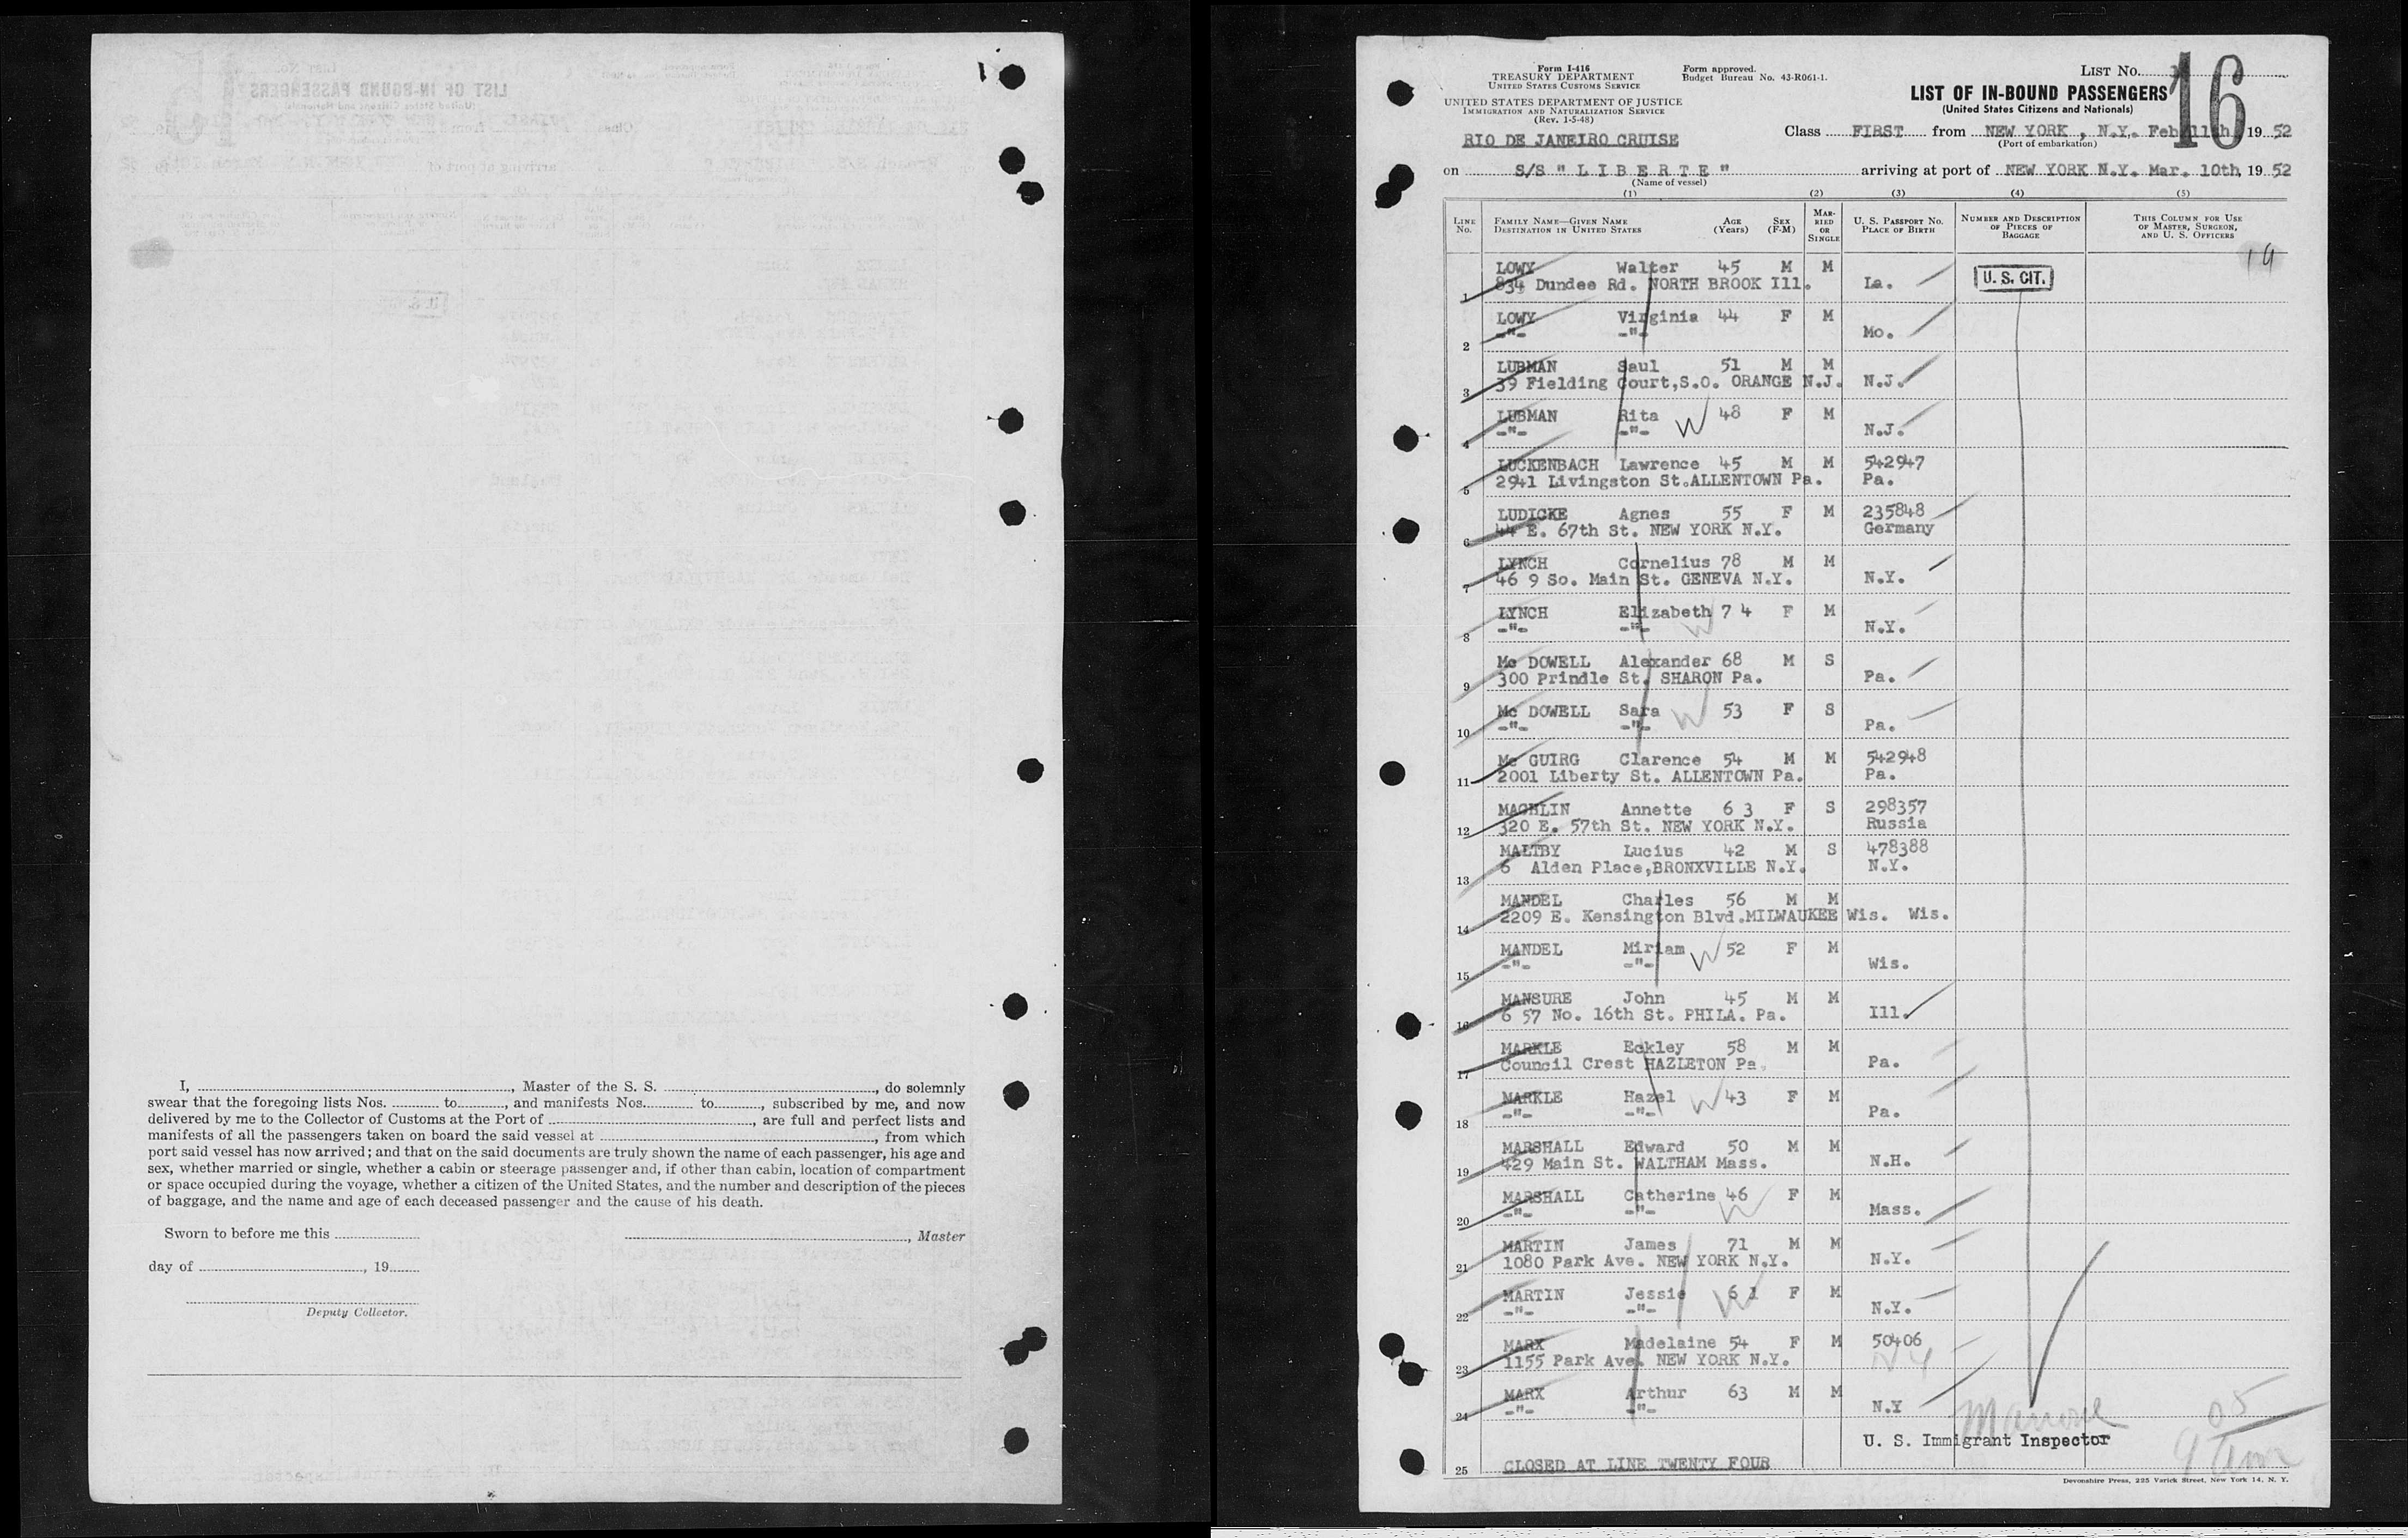 I, ________, Master of the S. S. ________, do solemnly
swear that the foregoing lists Nos. ____ to ____, and manifests Nos. ____ to ____, subscribed by me, and now
delivered by me to the Collector of Customs at the Port of ________, are full and perfect lists and
manifests of all the passengers taken on board the said vessel at ________, from which
port said vessel has now arrived; and that on the said documents are truly shown the name of each passenger, his age and
sex, whether married or single, whether a cabin or steerage passenger and, if other than cabin, location of compartment
or space occupied during the voyage, whether a citizen of the United States, and the number and description of the pieces
of baggage, and the name and age of each deceased passenger and the cause of his death.
Sworn to before me this ________ ________, Master
day of ________, 19____
Deputy Collector.
Form I-416
TREASURY DEPARTMENT
UNITED STATES CUSTOMS SERVICE
UNITED STATES DEPARTMENT OF JUSTICE
IMMIGRATION AND NATURALIZATION SERVICE
(Rev. 1-5-48)
Form approved.
Budget Bureau No. 43-R061-1.
LIST NO.
16
LIST OF IN-BOUND PASSENGERS
(United States Citizens and Nationals)
RIO DE JANEIRO CRUISE
Class FIRST from NEW YORK , N.Y. Feb/11th, 19 52
(Port of embarkation)
on S/S " L I B E R T E " arriving at port of NEW YORK N.Y. Mar. 10th, 19 52
(Name of vessel)
(1) (2) (3) (4) (5)
LINE NO. FAMILY NAME—GIVEN NAME DESTINATION IN UNITED STATES AGE (Years) SEX (F-M) MARRIED OR SINGLE U. S. PASSPORT NO. PLACE OF BIRTH NUMBER AND DESCRIPTION OF PIECES OF BAGGAGE THIS COLUMN FOR USE OF MASTER, SURGEON, AND U. S. OFFICERS
19
LOWY Walter 45 M M U. S. CIT.
1 834 Dundee Rd. NORTH BROOK Ill. La.
LOWY Virginia 44 F M
2 -"- -"- Mo.
LUBMAN Saul 51 M M
3 39 Fielding Court,S.O. ORANGE N.J. N.J.
LUBMAN Rita W 48 F M
4 -"- -"- N.J.
LUCKENBACH Lawrence 45 M M 542947
5 2941 Livingston St.ALLENTOWN Pa. Pa.
LUDICKE Agnes 55 F M 235848
6 44 E. 67th St. NEW YORK N.Y. Germany
LYNCH Cornelius 78 M M
7 46 9 So. Main St. GENEVA N.Y. N.Y.
LYNCH Elizabeth 7 4 F M
8 -"- -"- W N.Y.
Mc DOWELL Alexander 68 M S
9 300 Prindle St. SHARON Pa. Pa.
Mc DOWELL Sara W 53 F S
10 -"- -"- Pa.
Mc GUIRG Clarence 54 M M 542948
11 2001 Liberty St. ALLENTOWN Pa. Pa.
MACHLIN Annette 6 3 F S 298357
12 320 E. 57th St. NEW YORK N.Y. Russia
MALTBY Lucius 42 M S 478388
13 6 Alden Place,BRONXVILLE N.Y. N.Y.
MANDEL Charles 56 M M
14 2209 E. Kensington Blvd.MILWAUKEE Wis. Wis.
MANDEL Miriam W 52 F M
15 -"- -"- Wis.
MANSURE John 45 M M
16 6 57 No. 16th St. PHILA. Pa. Ill.
MARKLE Eckley 58 M M
17 Council Crest HAZLETON Pa. Pa.
MARKLE Hazel W 43 F M
18 -"- -"- Pa.
MARSHALL Edward 50 M M
19 429 Main St. WALTHAM Mass. N.H.
MARSHALL Catherine 46 F M
20 -"- -"- W Mass.
MARTIN James 71 M M
21 1080 Park Ave. NEW YORK N.Y. N.Y.
MARTIN Jessie W 6 1 F M
22 -"- -"- N.Y.
MARX Madelaine 54 F M 50406
23 1155 Park Ave. NEW YORK N.Y. NY
MARX Arthur 63 M M
24 -"- -"- N.Y
U. S. Immigrant Inspector
25 CLOSED AT LINE TWENTY FOUR
Devonshire Press, 225 Varick Street, New York 14, N. Y.